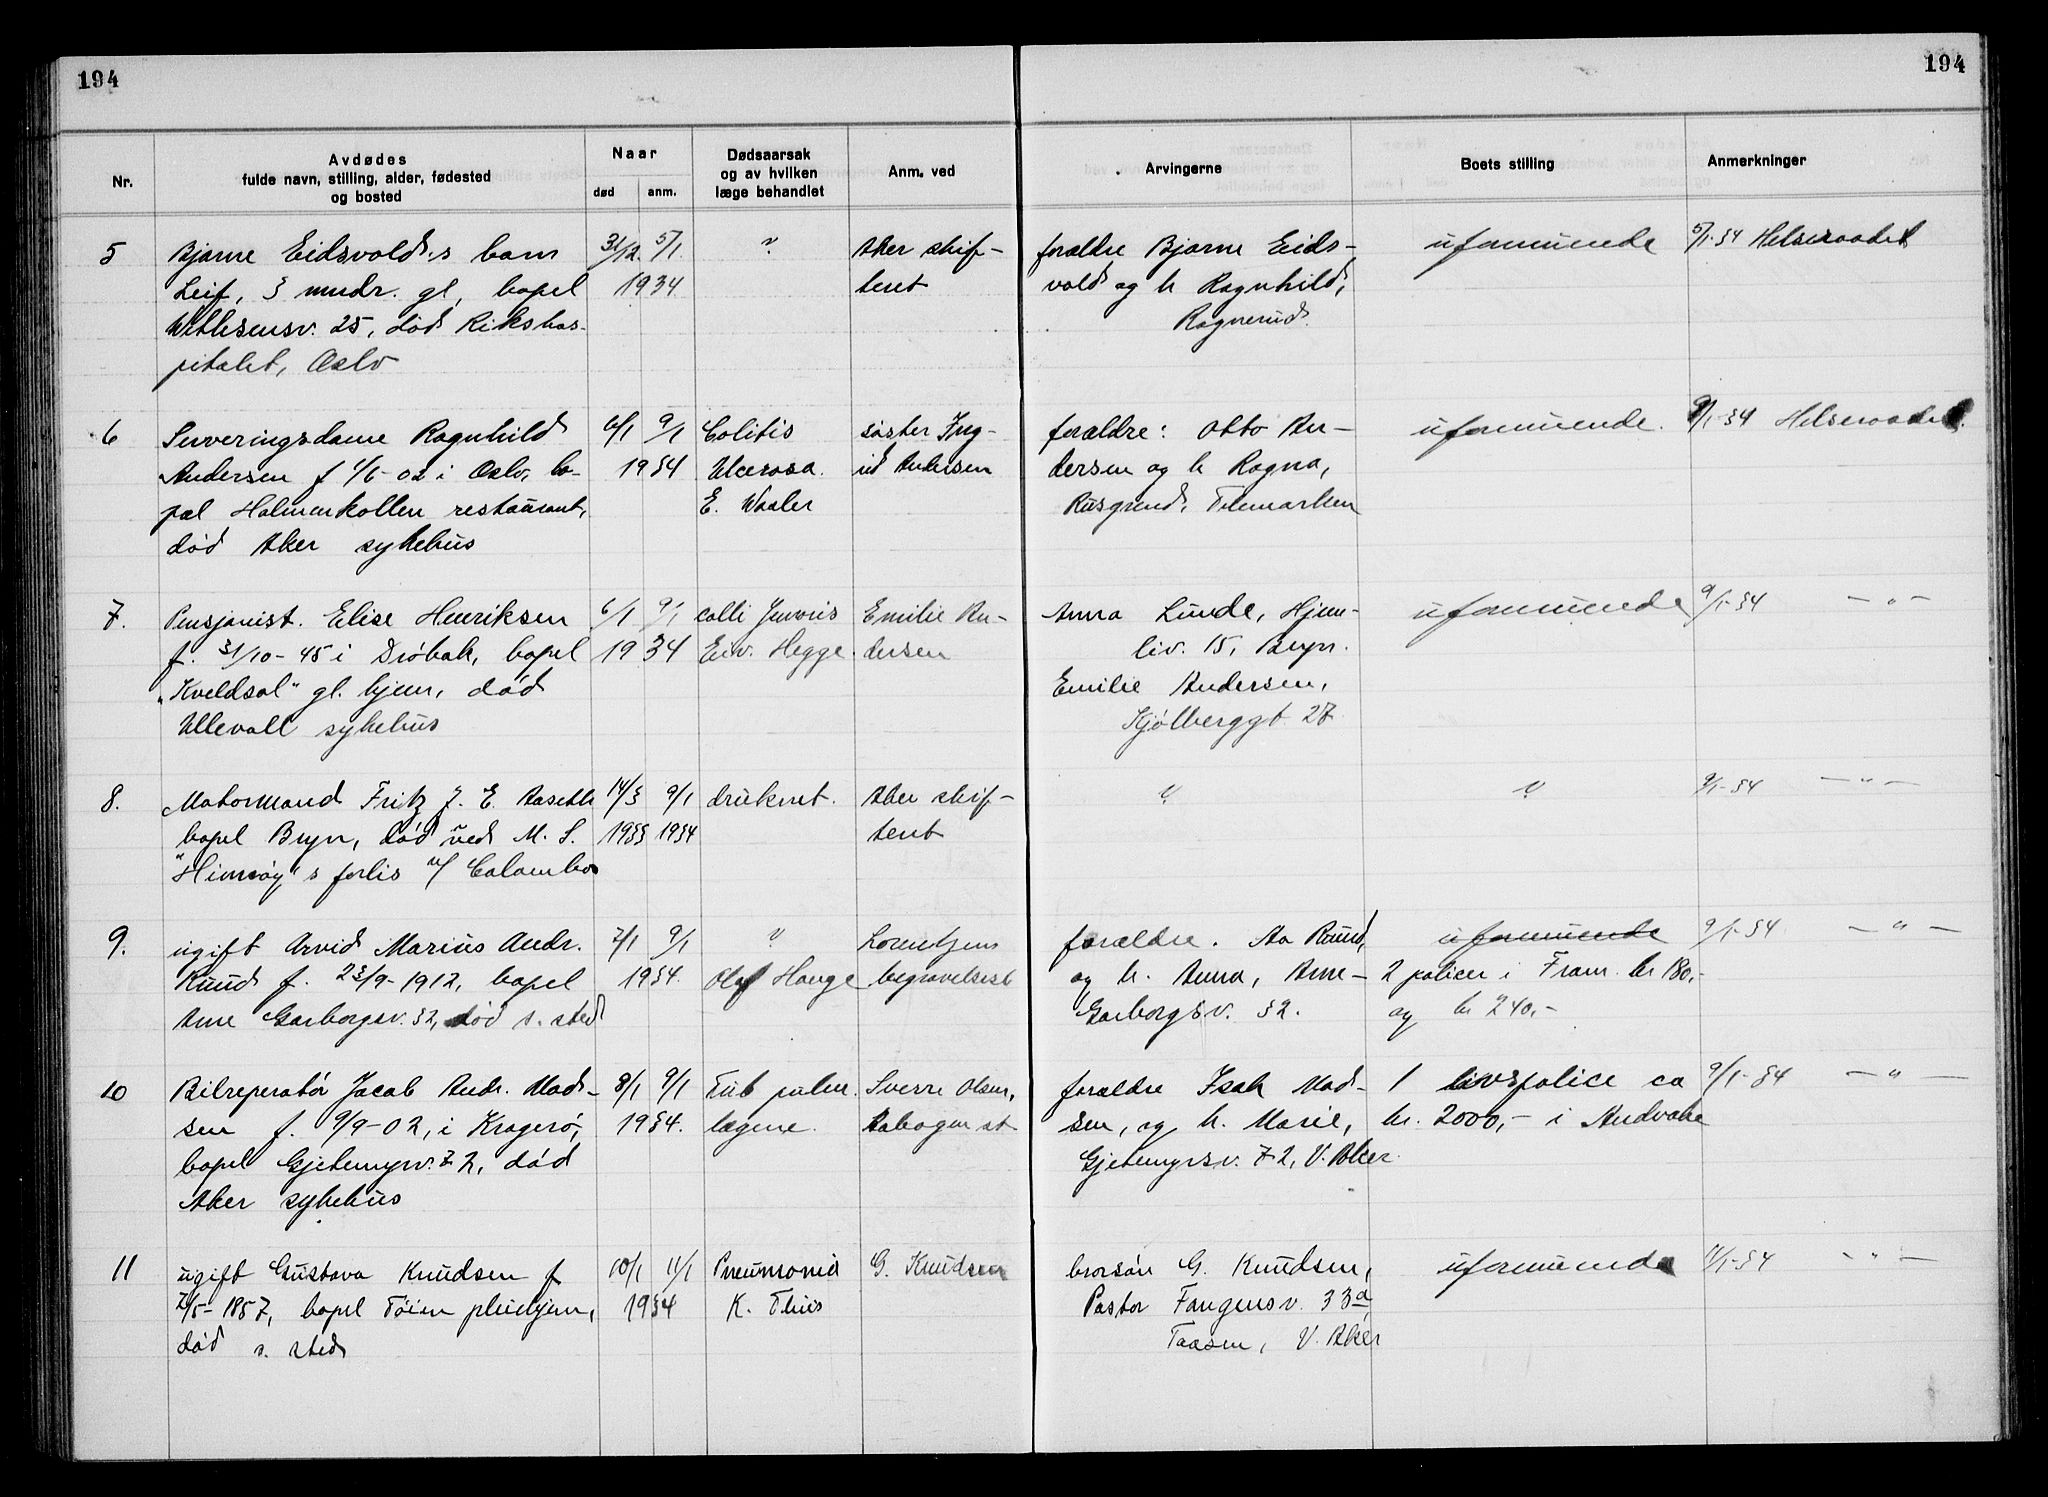 194
194
Nr.
Avdødes
fulde navn, stilling, alder, fødested
og bosted
Naar
død
anm.
Dødsaarsak
og av hvilken
læge behandlet
Anm. ved
Arvingerne
Boets stilling
Anmerkninger
5
Bjarne Eidsvold's barn
Leif, 3 mndr. gl, bopel
25, død Rikshos-
pitalet, Oslo
31/12. 5/1.
1934
?
Aker skif-
teret
forældre Bjarne Eids-
vold og h Ragnhild,
Rognerud.
uformuende
5/1-34 Helseraadet
6
Serveringsdame Ragnhild
Andersen f 1/6-02 i Oslo, bo-
pæl Holmenkollen restaurant,
død Aker sykehus
6/1 9/1
1934
Colitis
Ulcerosa.
E. Waaler
søster Ing-
rid Andersen
forældre: Otto An-
dersen og h Ragna,
Telemarken
uformuende.
9/1-34 Helseraadet.
7.
Pensjonist. Elise Henriksen
f. 31/10-45 i Drøbak, bopel
"Kveldsol" gl. hjem, død
Ullevall sykehus
6/1 9/1
1934
colli
Eiv. Hegge.
Emilie An-
dersen
Anna Linde, Hjem-
liv. 15, Bryn.
Emilie Andersen,
Kjølberggt 27
uformuende
9/1-34 — " —
8.
Motormand Fritz J. E. Aaseth
bopel Bryn, død ved M. S.
"Himsøy"s forlis v/ Colombo
14/3 9/1
1933 1934
druknet.
Aker skif-
teret
?
?
9/1-34 — " —
9.
ugift Arvid Marius Andr.
Ruud f. 23/9-1912, bopel
Arne Garborgsv. 32, død s. sted
7/1 9/1
1934.
?
Olaf Hauge
Lorentzens
begravelsesb
forældre. Aa Ruud,
og h. Anna, Arne-
Garborgsv. 32.
uformuende
2 policer i Fram. kr 180,-
og kr 240,-
9/1-34 — " —
10
Bilreperatør Jacob Andr. Mad-
sen f. 9/9-02, i Kragerø,
bopel Gjetemyrsv. 72, død
Aker sykehus
8/1 9/1
1934.
Tub pulm.
lægene.
Sverre Olsen,
st
forældre Isak Mad-
sen, og h. Marie,
Gjetemyrsv. 72, V. Aker.
1 livspolice ca
kr. 2000,- i Andvake
9/1-34 — " —
11
ugift Gustava Knudsen f
7/5-1857, bopel Tåsen pleiehjem,
død s. sted
10/1 11/1
1934
Pneumonia
K. Thiis
G. Knudsen
brorsøn G. Knudsen,
Pastor Fangensv. 33a
Taasen, V. Aker
uformuende
11/1-34 — " —